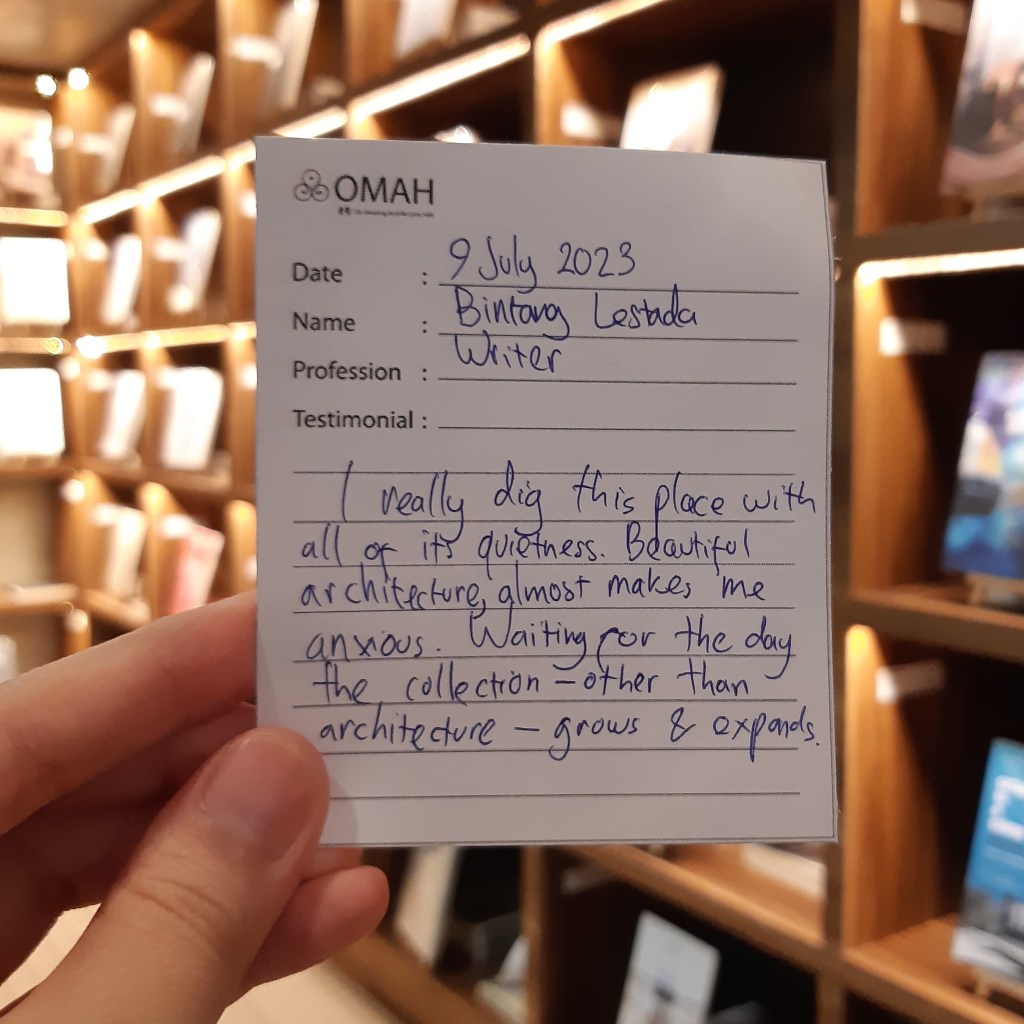 OMAH
Date : 9 July 2023
Name : Bintang Lestada
Profession : Writer
Testimonial :
I really dig this place with
all of its quietness. Beautiful
architecture, almost makes me
anxious. Waiting for the day
the collection – other than
architecture – grows & expands.